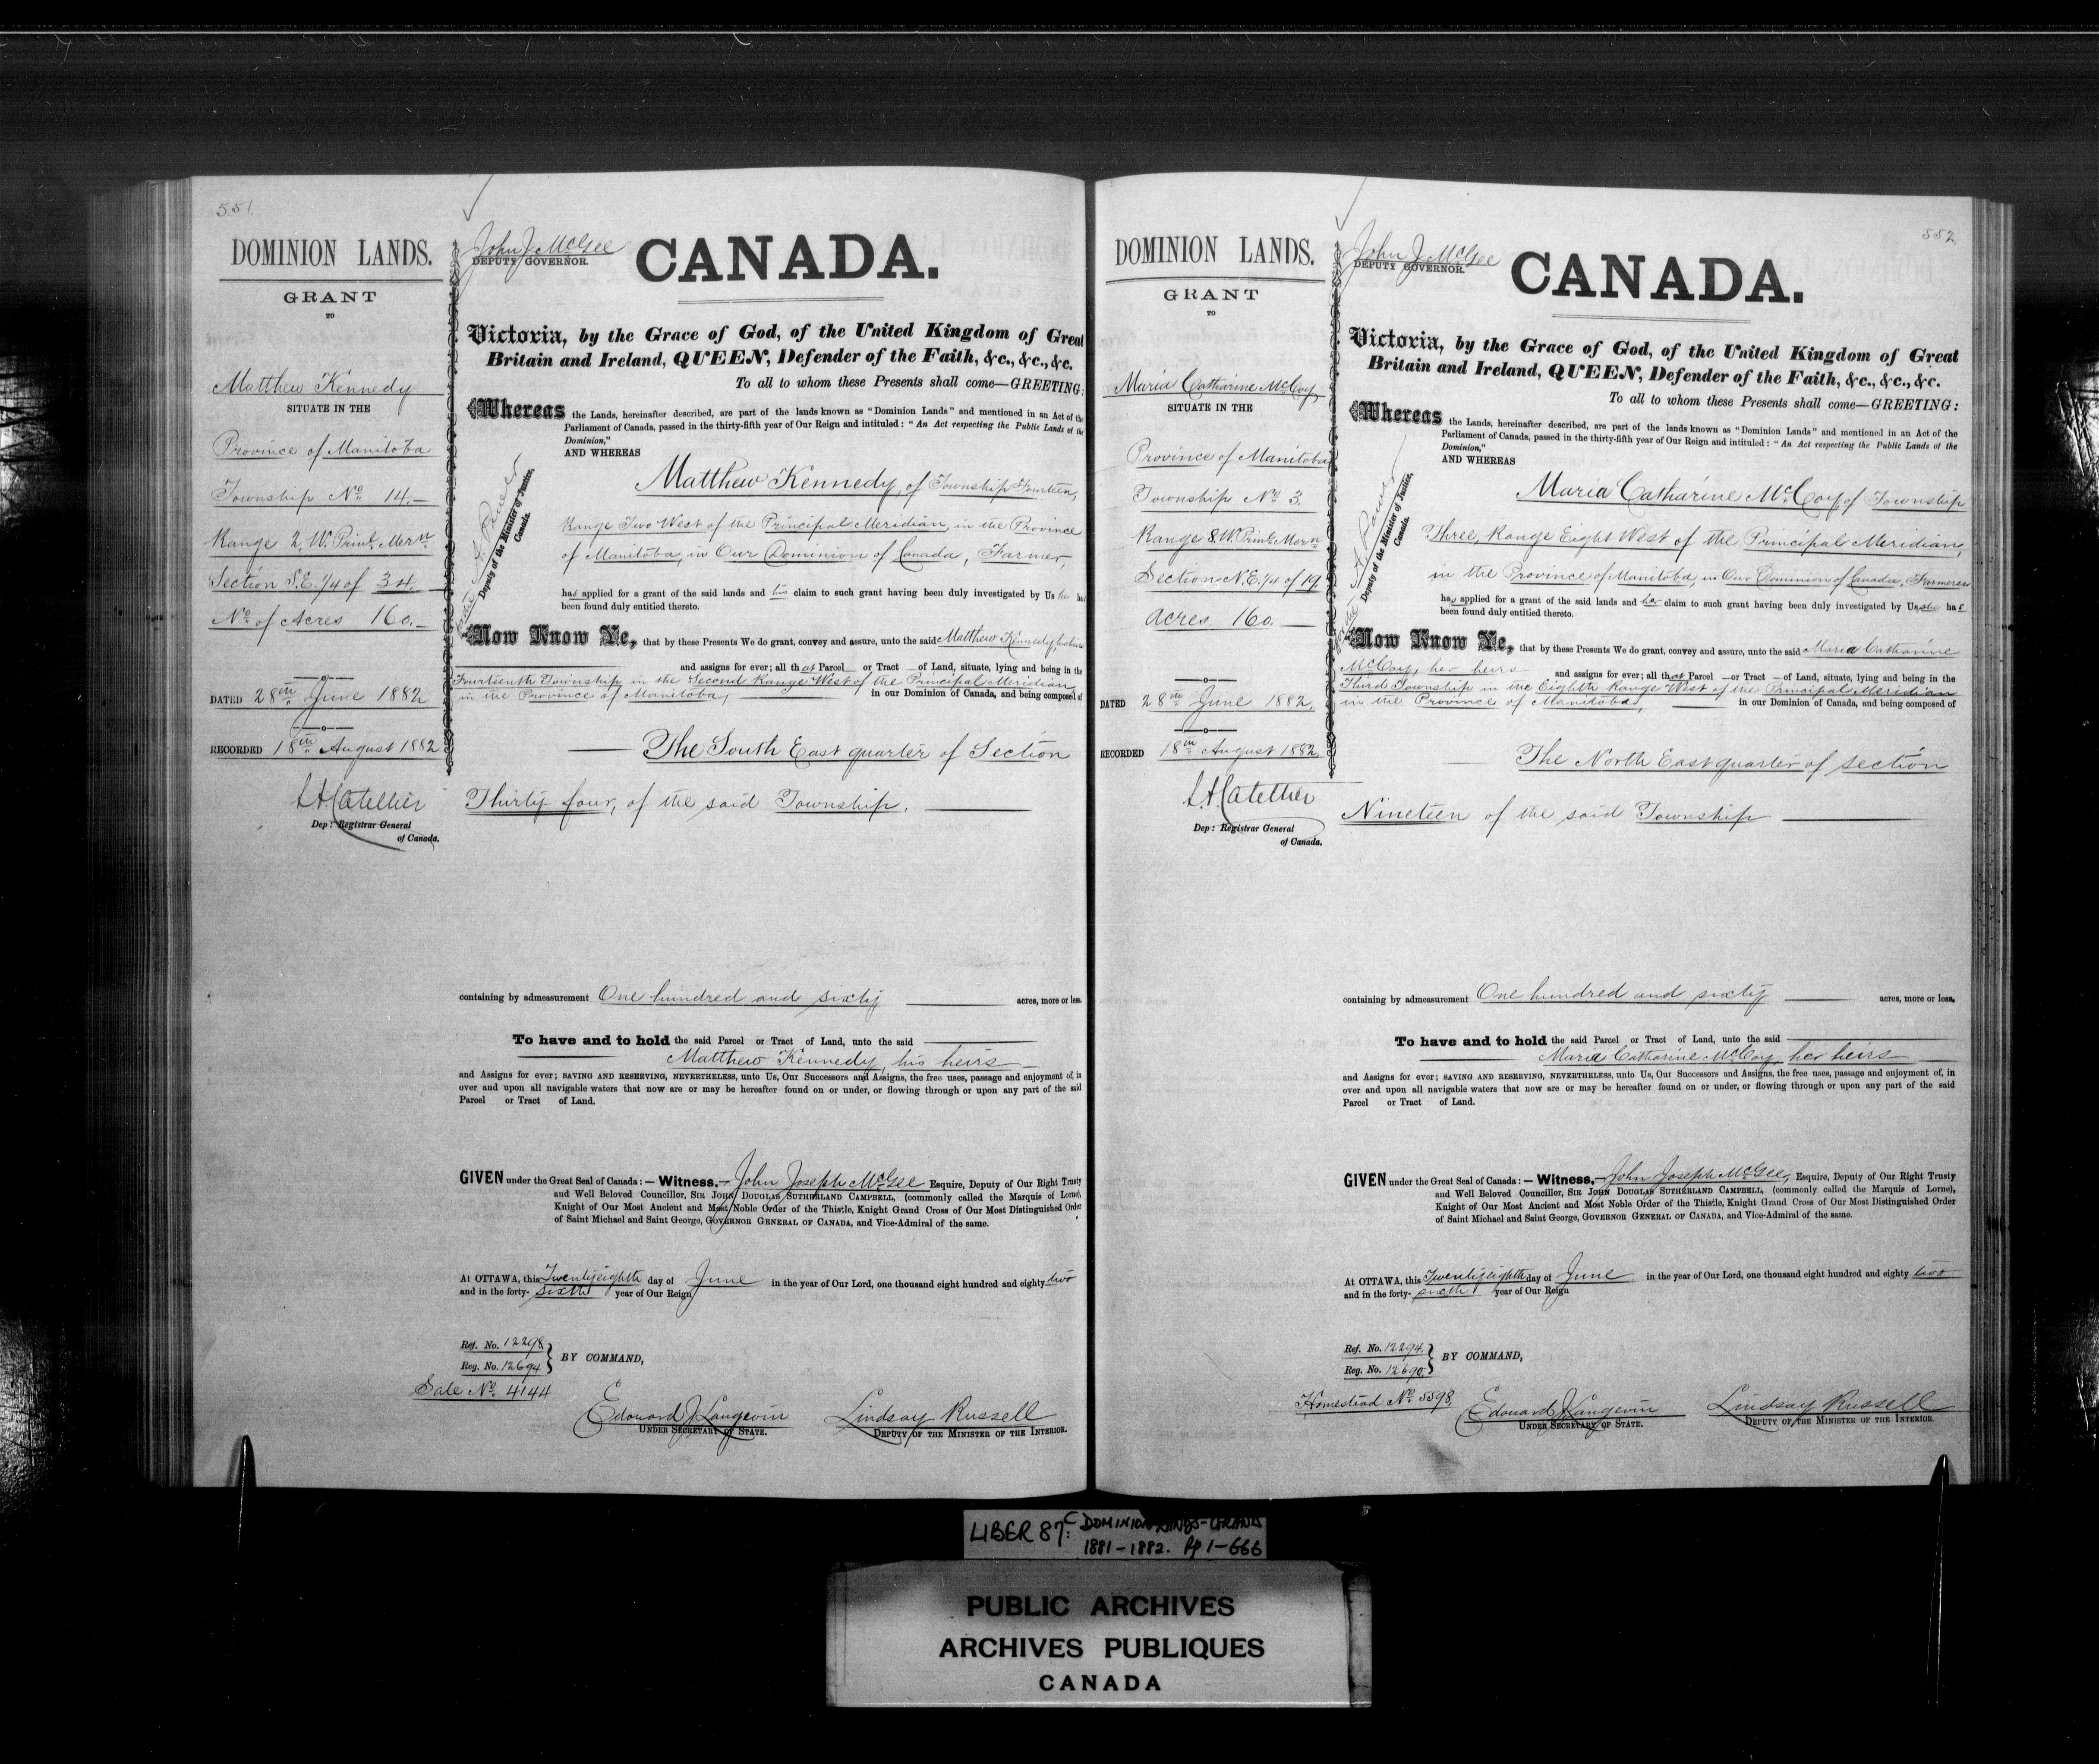 551.
DOMINION LANDS.
GRANT
TO
Matthew Kennedy
SITUATE IN THE
Province of Manitoba
Township No. 14.
Range 2, W. Prinl. Mern.
Section S.E. 1/4 of 34.
No. of Acres 160.
DATED 28th June 1882
RECORDED 18th August 1882
Dep: Registrar General
of Canada.
John J. McGee
DEPUTY GOVERNOR.
CANADA.
Victoria, by the Grace of God, of the United Kingdom of Great
Britain and Ireland, QUEEN, Defender of the Faith, &c., &c., &c.
To all to whom these Presents shall come—GREETING:
Whereas the Lands, hereinafter described, are part of the lands known as "Dominion Lands" and mentioned in an Act of the
Parliament of Canada, passed in the thirty-fifth year of Our Reign and intituled: "An Act respecting the Public Lands of the
Dominion,"
AND WHEREAS
Matthew Kennedy, of Township Fourteen,
Range Two West of the Principal Meridian, in the Province
of Manitoba, in Our Dominion of Canada, Farmer,
Deputy of the Minister of Justice,
Canada.
has applied for a grant of the said lands and his claim to such grant having been duly investigated by Us he has
been found duly entitled thereto.
Now Know Ye, that by these Presents We do grant, convey and assure, unto the said Matthew Kennedy, his heirs
and assigns for ever; all that Parcel or Tract of Land, situate, lying and being in the
Fourteenth Township in the Second Range West of the Principal Meridian
in the Province of Manitoba, in our Dominion of Canada, and being composed of
The South East quarter of Section
Thirty four, of the said Township.
containing by admeasurement One hundred and sixty acres, more or less.
To have and to hold the said Parcel or Tract of Land, unto the said
Matthew Kennedy, his heirs
and Assigns for ever; SAVING AND RESERVING, NEVERTHELESS, unto Us, Our Successors and Assigns, the free uses, passage and enjoyment of, in
over and upon all navigable waters that now are or may be hereafter found on or under, or flowing through or upon any part of the said
Parcel or Tract of Land.
GIVEN under the Great Seal of Canada:—Witness,—John Joseph McGee Esquire, Deputy of Our Right Trusty
and Well Beloved Councillor, SIR JOHN DOUGLAS SUTHERLAND CAMPBELL, (commonly called the Marquis of Lorne),
Knight of Our Most Ancient and Most Noble Order of the Thistle, Knight Grand Cross of Our Most Distinguished Order
of Saint Michael and Saint George, GOVERNOR GENERAL OF CANADA, and Vice-Admiral of the same.
At OTTAWA, this Twenty eighth day of June in the year of Our Lord, one thousand eight hundred and eighty two
and in the forty- sixth year of Our Reign
Ref. No. 12298
Reg. No. 12694
BY COMMAND,
Sale No. 4144
Edouard J. Langevin
UNDER SECRETARY OF STATE.
Lindsay Russell
DEPUTY OF THE MINISTER OF THE INTERIOR.
552.
DOMINION LANDS.
GRANT
TO
Maria Catharine McCoy
SITUATE IN THE
Province of Manitoba
Township No. 3.
Range 8. W. Prinl. Mern.
Section N.E. 1/4 of 19.
Acres. 160.
DATED 28th June 1882.
RECORDED 18th August 1882
Dep: Registrar General
of Canada.
John J. McGee
DEPUTY GOVERNOR.
CANADA.
Victoria, by the Grace of God, of the United Kingdom of Great
Britain and Ireland, QUEEN, Defender of the Faith, &c., &c., &c.
To all to whom these Presents shall come—GREETING:
Whereas the Lands, hereinafter described, are part of the lands known as "Dominion Lands" and mentioned in an Act of the
Parliament of Canada, passed in the thirty-fifth year of Our Reign and intituled: "An Act respecting the Public Lands of the
Dominion,"
AND WHEREAS
Maria Catharine McCoy of Township
Three, Range Eight West of the Principal Meridian,
in the Province of Manitoba in Our Dominion of Canada, Farmeress
Deputy of the Minister of Justice,
Canada.
has applied for a grant of the said lands and her claim to such grant having been duly investigated by Us she has
been found duly entitled thereto.
Now Know Ye, that by these Presents We do grant, convey and assure, unto the said Maria Catharine
McCoy, her heirs and assigns for ever; all that Parcel or Tract of Land, situate, lying and being in the
Third Township in the Eighth Range West of the Principal Meridian
in the Province of Manitoba, in our Dominion of Canada, and being composed of
The North East quarter of section
Nineteen of the said Township
containing by admeasurement One hundred and sixty acres, more or less.
To have and to hold the said Parcel or Tract of Land, unto the said
Maria Catharine McCoy her heirs
and Assigns for ever; SAVING AND RESERVING, NEVERTHELESS, unto Us, Our Successors and Assigns, the free uses, passage and enjoyment of, in
over and upon all navigable waters that now are or may be hereafter found on or under, or flowing through or upon any part of the said
Parcel or Tract of Land.
GIVEN under the Great Seal of Canada:—Witness,—John Joseph McGee, Esquire, Deputy of Our Right Trusty
and Well Beloved Councillor, SIR JOHN DOUGLAS SUTHERLAND CAMPBELL, (commonly called the Marquis of Lorne),
Knight of Our Most Ancient and Most Noble Order of the Thistle, Knight Grand Cross of Our Most Distinguished Order
of Saint Michael and Saint George, GOVERNOR GENERAL OF CANADA, and Vice-Admiral of the same.
At OTTAWA, this Twenty eighth day of June in the year of Our Lord, one thousand eight hundred and eighty two
and in the forty- sixth year of Our Reign
Ref. No. 12294.
Reg. No. 12690
BY COMMAND,
Homestead No. 5598
Edouard J. Langevin
UNDER SECRETARY OF STATE.
Lindsay Russell
DEPUTY OF THE MINISTER OF THE INTERIOR.
LIBER 87C: DOMINION LANDS-GRANTS
1881-1882. Pp 1-666
PUBLIC ARCHIVES
ARCHIVES PUBLIQUES
CANADA